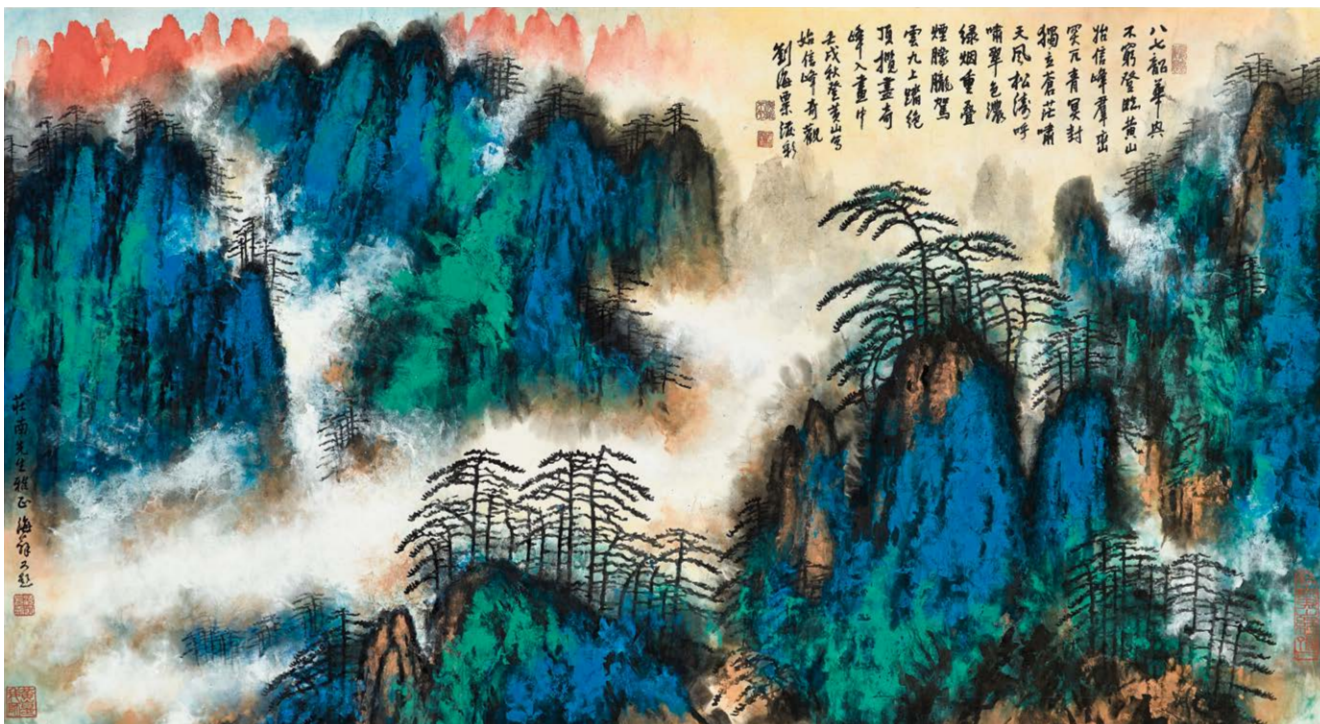 八七韶華興
不窮登臨黃山
始信峰羣巒
突兀青冥封
獨立蒼茫嘯
天風松濤呼
嘯翠色濃
綠烟重叠
煙朦朧駕
雲九上踏絕
頂攬盡奇
峰入畫中
壬戌秋登黃山寫
始信峰奇觀
劉海粟潑彩
莊南先生雅正 海翁又題